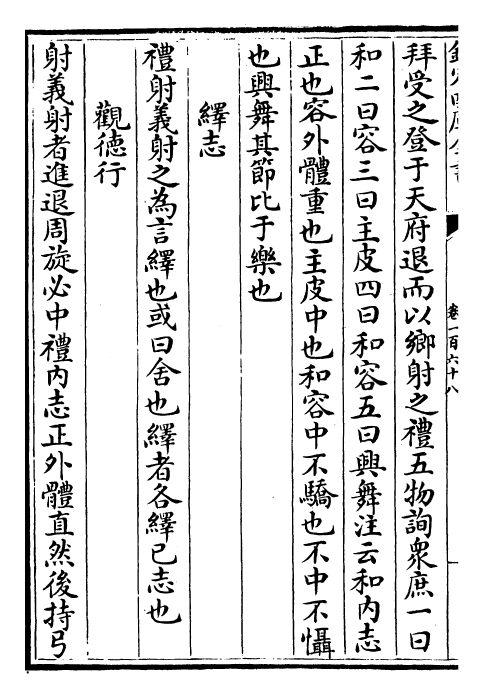 欽定四庫全書
卷一百六十八
拜受之登于天府退而以鄉射之禮五物詢衆庶一曰
和二曰容三曰主皮四曰和容五曰興舞注云和内志
正也容外體重也主皮中也和容中不驕也不中不懾
也興舞其節比于樂也
繹志
禮射義射之為言繹也或曰舍也繹者各繹已志也
觀德行
射義射者進退周旋必中禮内志正外體直然後持弓